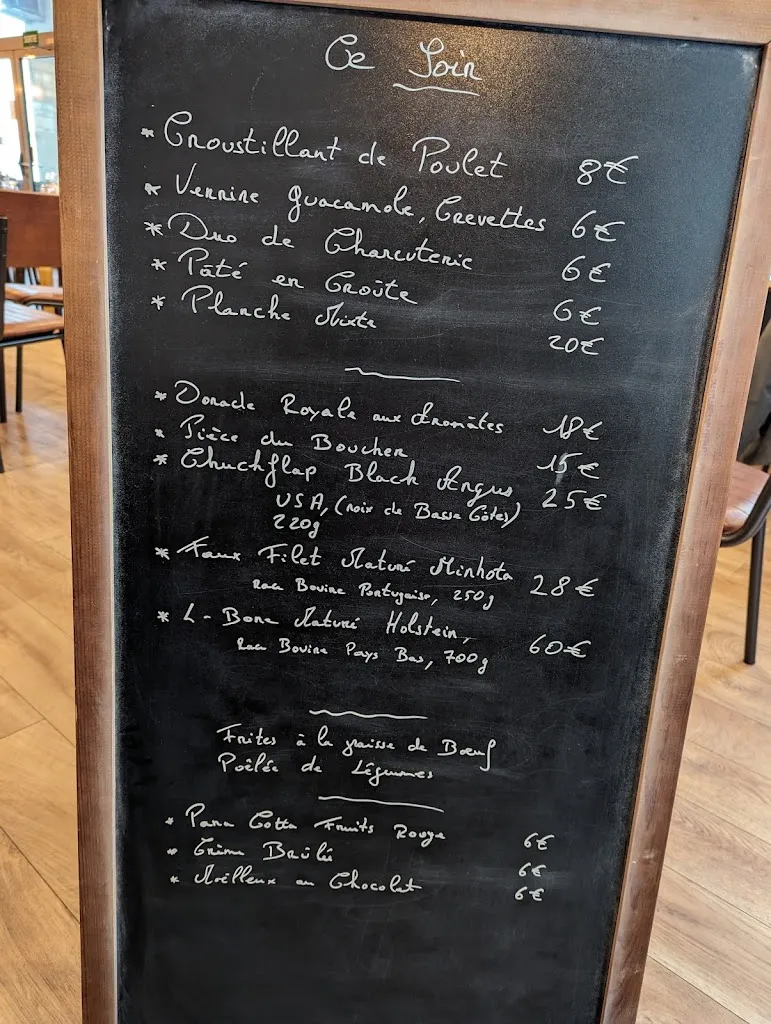 Ce Soir
* Croustillant de Poulet 8€
* Verrine Guacamole, Crevettes 6€
* Duo de Charcuterie 6€
* Pâté en Croûte 6€
* Planche Mixte 20€
* Dorade Royale aux Aromates 18€
* Pièce du Boucher 15€
* Chuckflap Black Angus 25€
USA, (noix de Basse Côtes)
220g
* Faux Filet Maturé Minhota 28€
Race Bovine Portugaise, 250g
* L-Bone Maturé Holstein, 60€
Race Bovine Pays Bas, 700g
Frites à la graisse de Bœuf
Poêlée de Légumes
* Pana Cotta Fruits Rouge 6€
* Crème Brûlé 6€
* Moilleux au Chocolat 6€